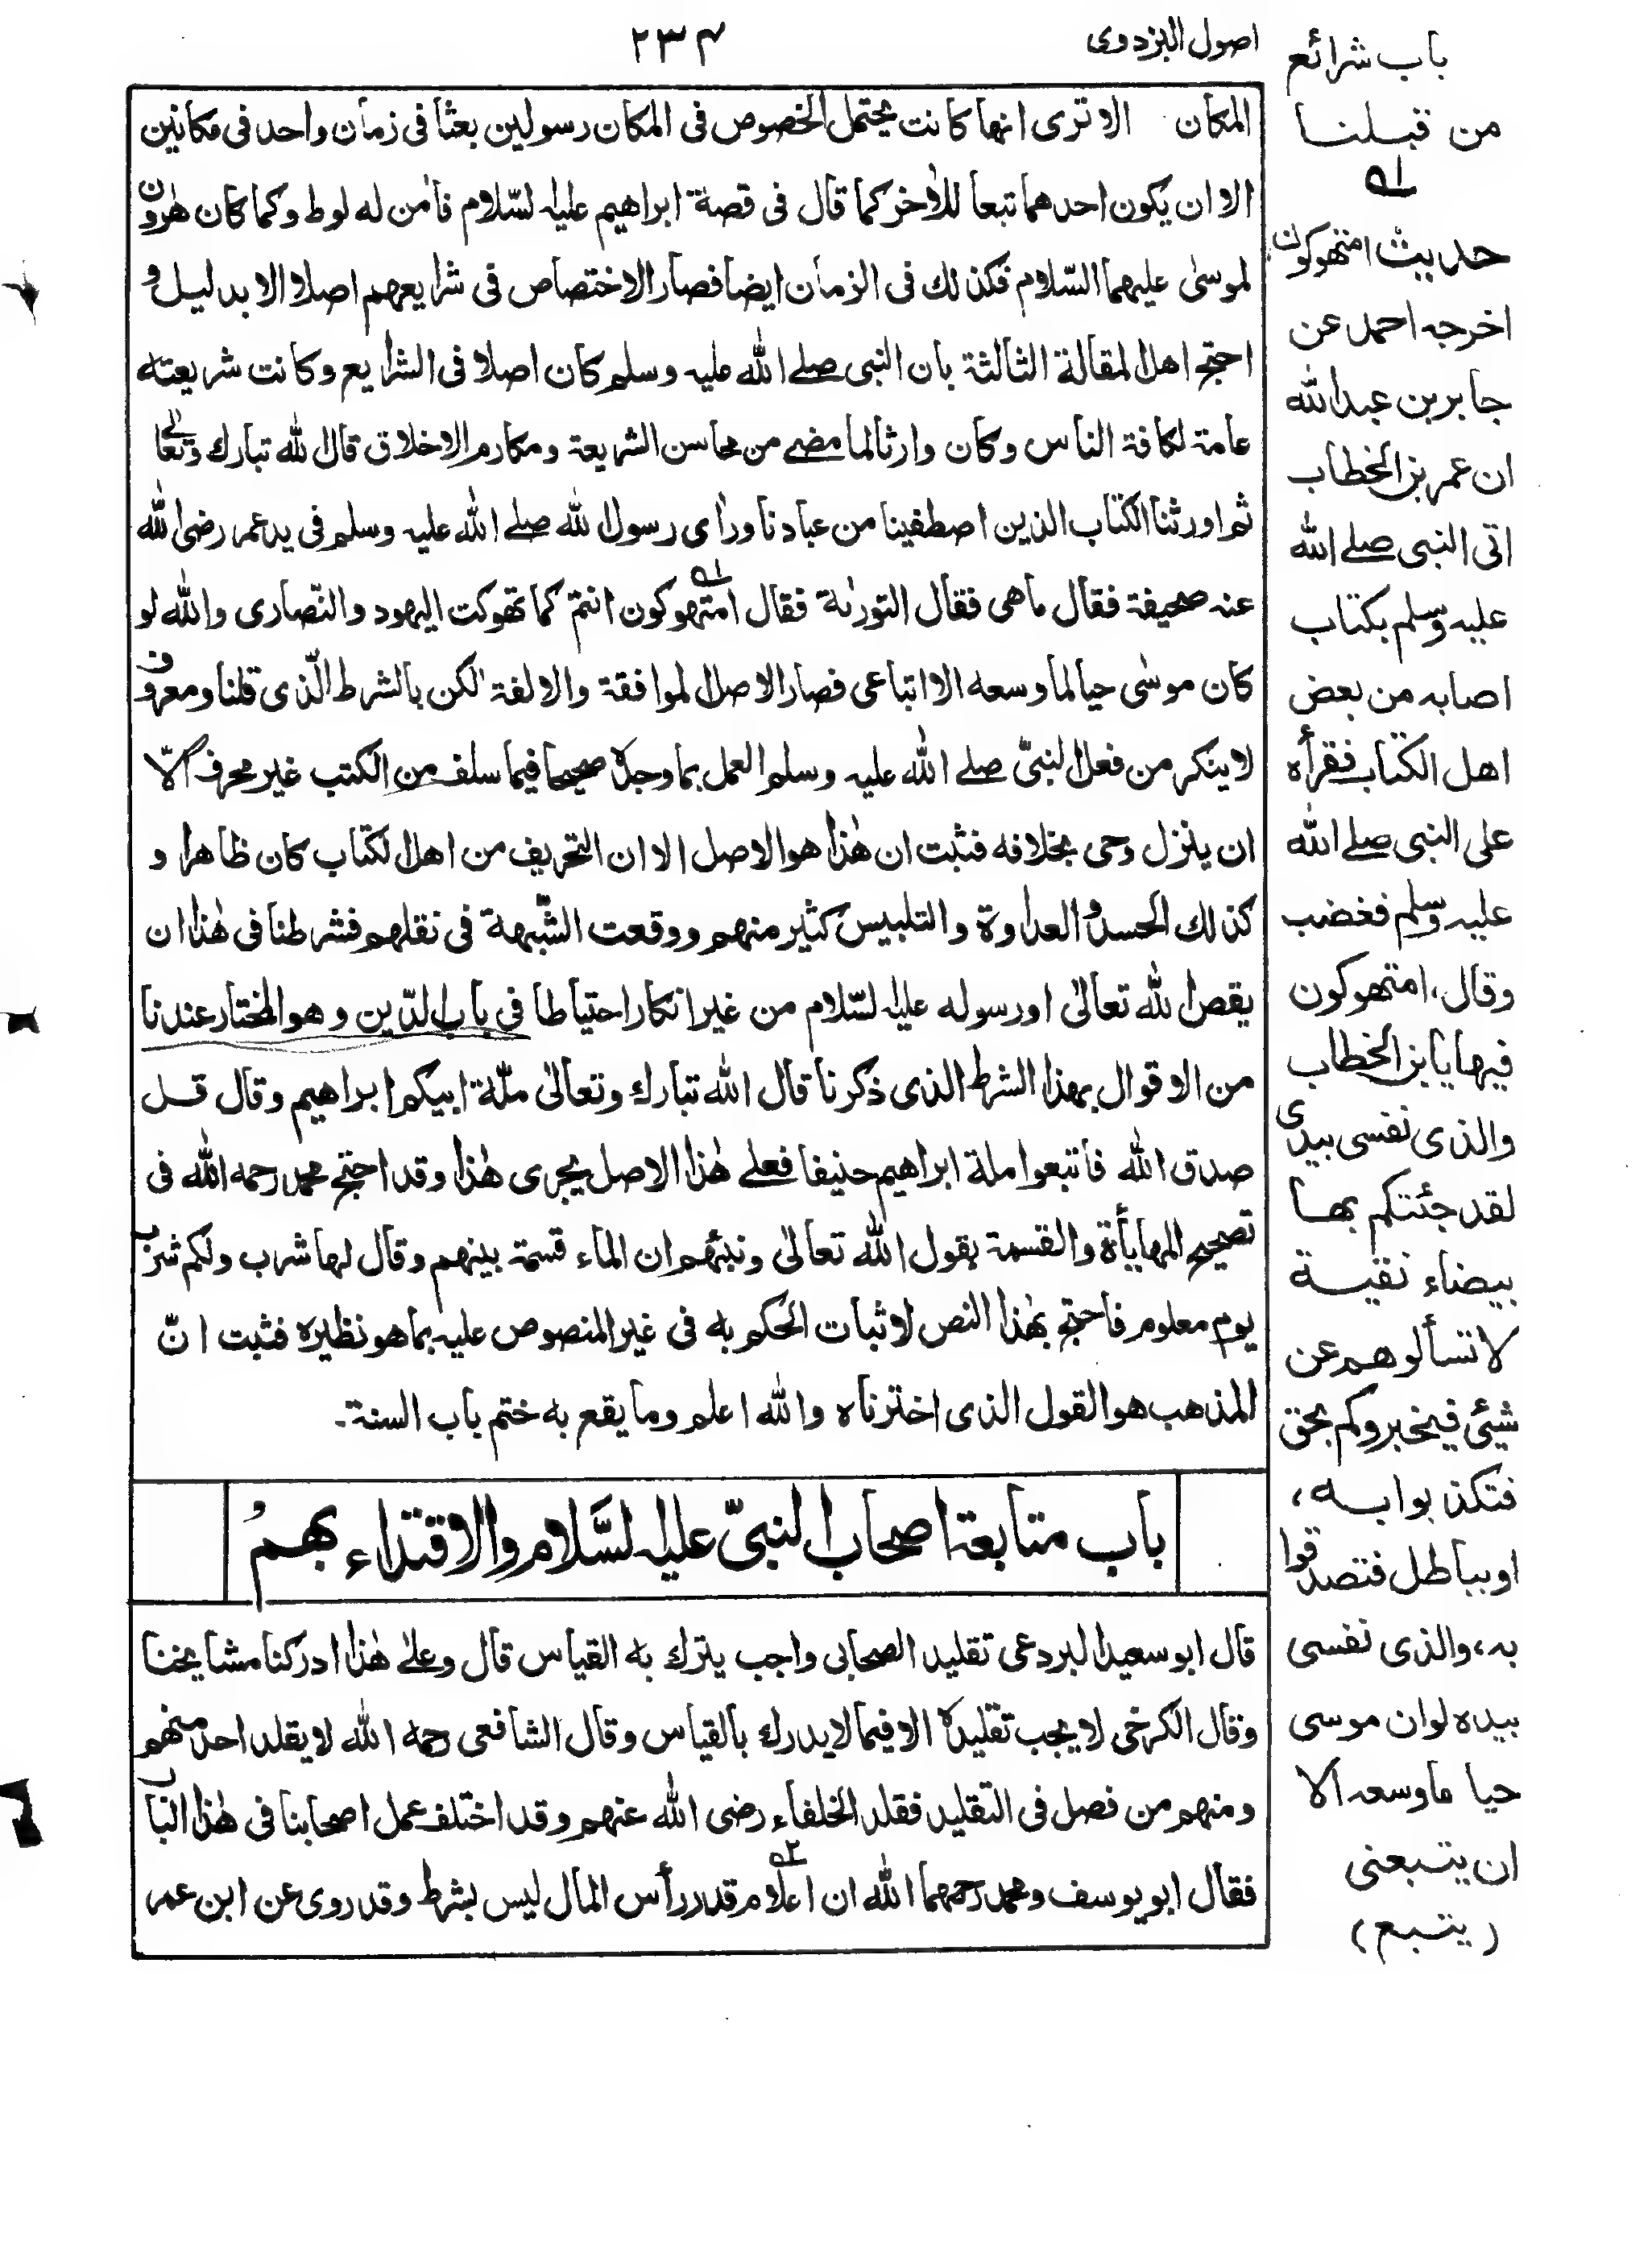 اصول البزدوى
٢٣٤
المكان الا ترى انها كانت يحتمل الخصوص فى المكان رسولين بعثا فى زمان واحد فى مكانين
الا ان يكون احدهما تبعا للأخر كما قال فى قصة ابراهيم عليه السّلام فاٰمن له لوط وكما كان هٰرون
لموسىٰ عليهما السّلام فكذلك فى الزمان ايضا فصار الاختصاص فى شرايعهم اصلا الا بدليل و
احتج اهل المقالة الثالثة بان النبى صلے الله عليه وسلم كان اصلا فى الشرايع وكانت شريعته
عامة لكافة الناس وكان وارثا لما مضے من محاسن الشريعة ومكارم الاخلاق قال الله تبارك وتعالىٰ
ثم اورثنا الكتاب الذين اصطفينا من عبادنا ورأى رسول الله صلے الله عليه وسلم فى يد عمر رضى الله
عنه صحيفة فقال ماهى فقال التورٰىة فقال امتهوكون ١ه‍ انتم كما تهوكت اليهود والنّصارى والله لو
كان موسٰى حيا لما وسعه الا اتباعى فصار الاصل الموافقة والالفة لٰكن بالشرط الّذى قلنا ومعروف
لا ينكر من فعل النبىّ صلے الله عليه وسلم العمل بما وجدهٗ صحيحا فيما سلف من الكتب غير محرف الّا
ان ينزل وحى بخلافه فثبت ان هٰذا هوالاصل الا ان التحريف من اهل الكتاب كان ظاهرا و
كذلك الحسد والعداوة والتلبيس كثير منهم ووقعت الشّبهة فى نقلهم فشرطنا فى هٰذا ان
يقص الله تعالىٰ اورسوله عليه السّلام من غير انكار احتياطا فى باب الدّين وهو المختار عندنا
من الاقوال بهذا الشرط الذى ذكرنا قال الله تبارك وتعالىٰ ملّة ابيكم ابراهيم وقال قل
صدق الله فاتبعوا ملة ابراهيم حنيفا فعلے هٰذا الاصل يجرى هٰذا وقد احتج محمد رحمه الله فى
تصحيح المهايأة والقسمة بقول الله تعالىٰ ونبئهم ان الماء قسمة بينهم وقال لها شرب ولكم شرب
يوم معلوم فاحتج بهٰذا النص لاثبات الحكم به فى غير المنصوص عليه بما هو نظيره فثبت انّ
المذهب هوالقول الذى اخترناه والله اعلم وما يقع به ختم باب السنة۔
باب متابعة اصحاب النبىّ عليه السَّلام والاقتداء بهمُ
قال ابوسعيد البردعى تقليد الصحابى واجب يترك به القياس قال وعلےٰ هٰذا ادركنا مشايخنا
وقال الكرخى لا يجب تقليدهٗ الا فيما لا يدرك بالقياس وقال الشافعى رحمه الله لا يقلد احد منهم
ومنهم من فصل فى التقليد فقلد الخلفاء رضى الله عنهم وقد اختلف عمل اصحابنا فى هٰذا الباب
فقال ابويوسف ومحمد رحمهما الله ٢ه‍ ان اعلام قدر رأس المال ليس بشرط وقد روى عن ابن عمر
باب شرائع
من قبلنا
١ه‍
حديث امتهوكون
اخرجه احمد عن
جابر بن عبدالله
ان عمر بن الخطاب
اتى النبى صلے الله
عليه وسلم بكتاب
اصابه من بعض
اهل الكتاب فقرأه
على النبى صلے الله
عليه وسلم فغضب
وقال، امتهوكون
فيها يا بن الخطاب
والذى نفسى بيدى
لقد جئتكم بها
بيضاء نقية
لا تسألوهم عن
شيئى فيخبروكم بحق
فتكذبوا به،
او بباطل فتصدقوا
به، والذى نفسى
بيده لو ان موسى
حيا ما وسعه الا
ان يتبعنى
(يتبع)